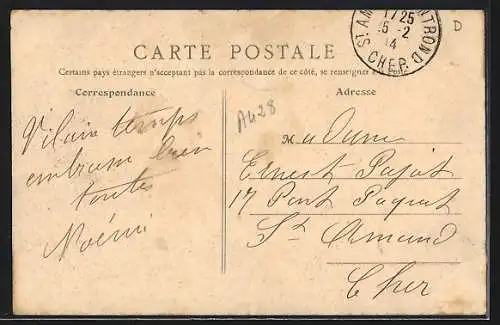 ST AMAND MONTROND
17 25
15 -2
14
CHER
D
CARTE POSTALE
Certains pays étrangers n'acceptant pas la correspondance de ce côté, se renseigner à la Poste
Correspondance
Adresse
A428
Vilain temps
embrasse bien
toutes
Noémi
Madame
Ernest Pajot
17 Pont Paquet
St Amand
Cher